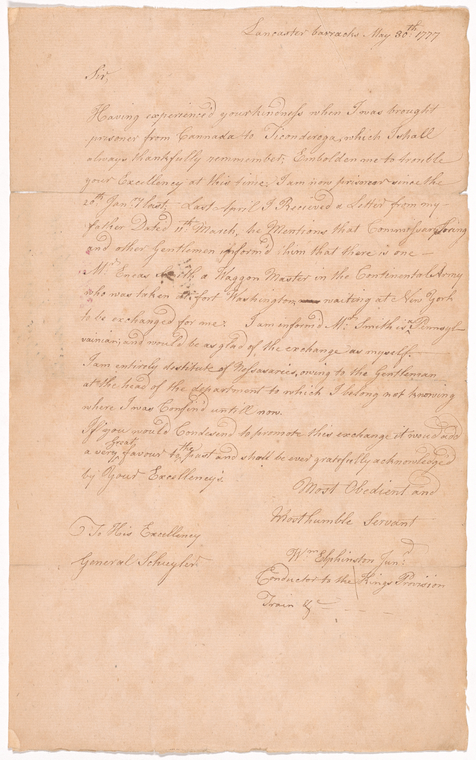 Lancaster barracks May 30th 1777
Sir
Having experienced your kindness when I was brought
prisoner from Cannada to Ticonderoga, which I shall
always thankfully remember; Embolden me to trouble
your Excellency at this time. I am now prisoner since the
20th Jany last. Last April I Received a Letter from my
father Dated 11th March, he Mentions that Commissery Loring
and other Gentlemen inform'd him that there is one
Mr Eneas Smith a Waggon Master in the Contenental Army
who was taken at fort Washington waiting at New York
to be exchanged for me. I am inform'd Mr Smith is a Pennsyl
vainian; and would be as glad of the exchange as myself.
I am entirely destitute of Nessasaries, owing to the Gentleman
at the head of the department to which I belong not knowing
where I was Confin'd untill now.
If you would Condesend to promote this exchange it would add
a very Great favour to the past and shall be ever gratefully acknowledged
by Your Excellencys
Most Obedient and
Most humble Servant
To His Excellency
General Schuyler
Wm Elphinston Junr
Conductor to the Kings Provision
Train &c